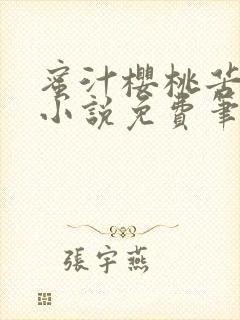 蜜汁櫻桃苦
小說免費筆
張宇燕